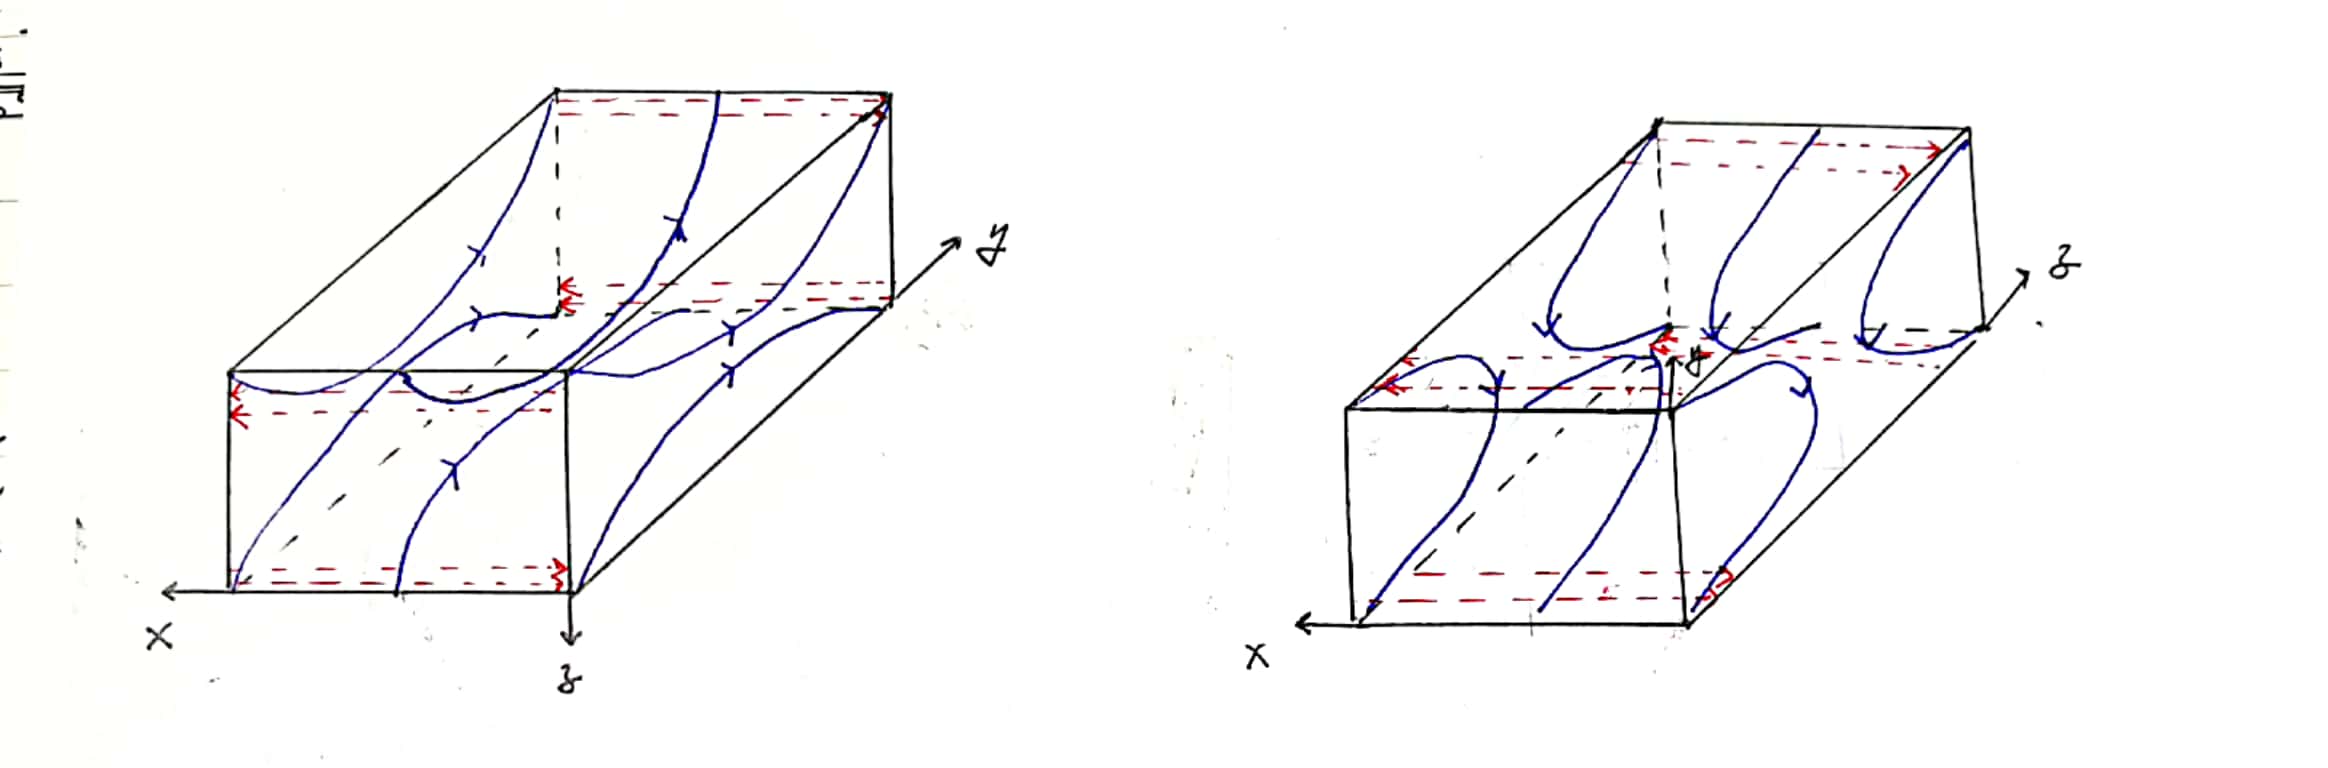 y
x
z
z
y
x